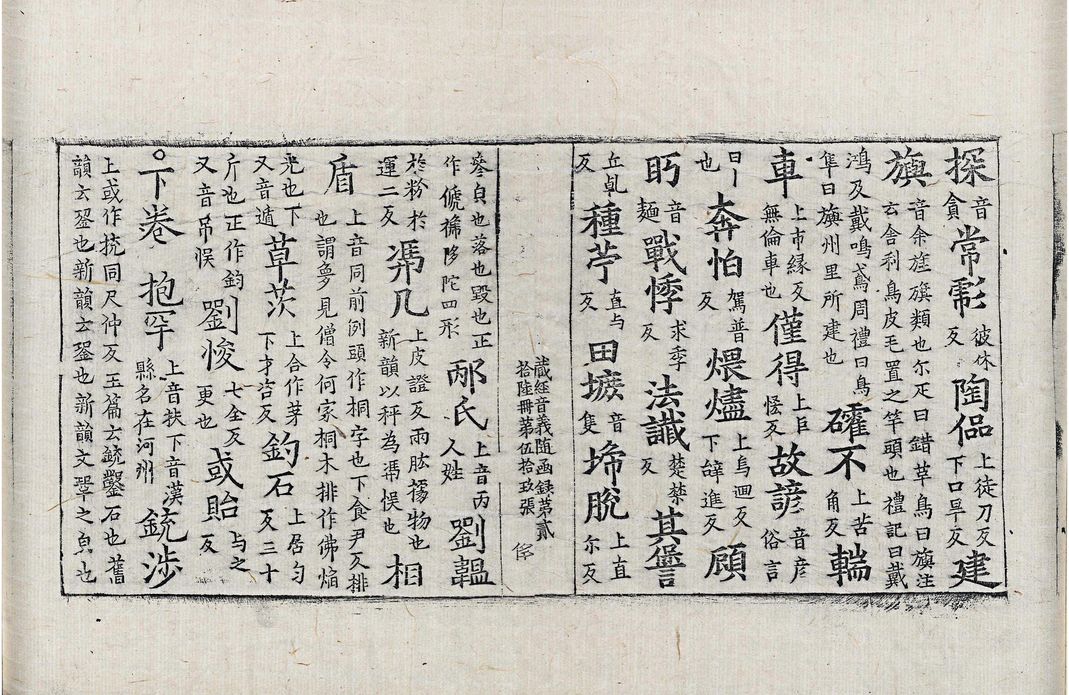 探音貪常彲彼休反陶侃上徒刀反下口旱反建
旟音余旌旟類也尒疋曰錯草鳥曰旟注玄舎利鳥皮毛置之竿頭也禮記曰戴
鴻及戴鳴鳶周禮曰鳥隼曰旟州里所建也確不上苦角反輲
車上市縁反無倫車也僅得上巨怪反故諺音彦俗言
也奔怕駕普反煨燼上烏迴反下辝進反顧
眄音麵戰悸求季反法讖楚禁反其
丘乹反種苧直与反田墢音隻埽脫上直尒反
藏經音義随函録第貳拾陸冊第伍拾玖張
貞也落也毀也正作㒍褫陊陀四形邴氏上音丙人姓劉韞
於粉於運二反凴几上皮證反兩肱掾物也新韻以秤為凴悮也相
盾上音同前例頭作桐字也下食尹反排也謂夛見僧令何家桐木排作佛焰
光也下又音遁草茨上合作茅下才咨反鈞石上居勻反三十
斤也正作鈞又音吊悮劉悛七全反更也或貽与之反
下卷抱罕上音扶下音漢縣名在河州銃涉
上或作㧤同尺仲反玉篇云銃鑿石也舊
韻云銎也新韻云銎也新韻文鞏之貟也